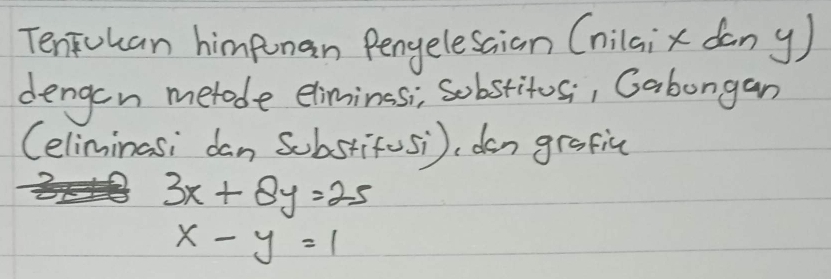 Tentukan himpunan Penyelesaian (nilai x dan y)
dengan metode eliminasi, Substitusi, Gabungan
(eliminasi dan Substitusi), dan grafik
3x + 8y = 25
x - y = 1